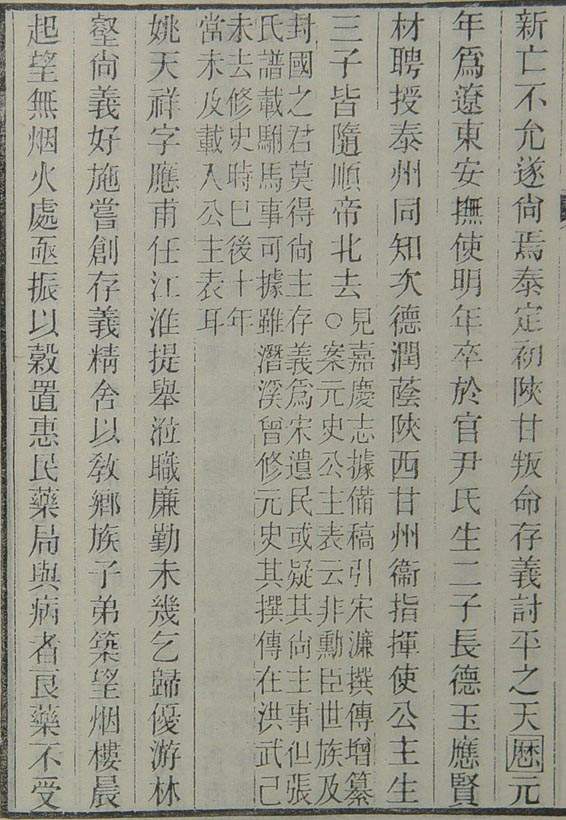 新亡不允遂尙焉泰定初陝甘叛命存義討平之天暦元
年爲遼東安撫使明年卒於官尹氏生二子長德玉應賢
材聘授泰州同知次德潤蔭陝西甘州衞指揮使公主生
三子皆隨順帝北去
見嘉慶志據備稿引宋濂撰傳增纂
○案元史公主表云非勳臣世族及
封國之君莫得尙主存義爲宋遺民或疑其尙主事但張
氏譜載駙馬事可據雖潛溪曾修元史其撰傳在洪武己
未去修史時已後十年
當未及載入公主表耳
姚天祥字應甫任江淮提舉涖職廉勤未幾乞歸優游林
壑尙義好施嘗創存義精舍以敎鄉族子弟築望烟樓晨
起望無烟火處亟振以穀置惠民藥局與病者良藥不受